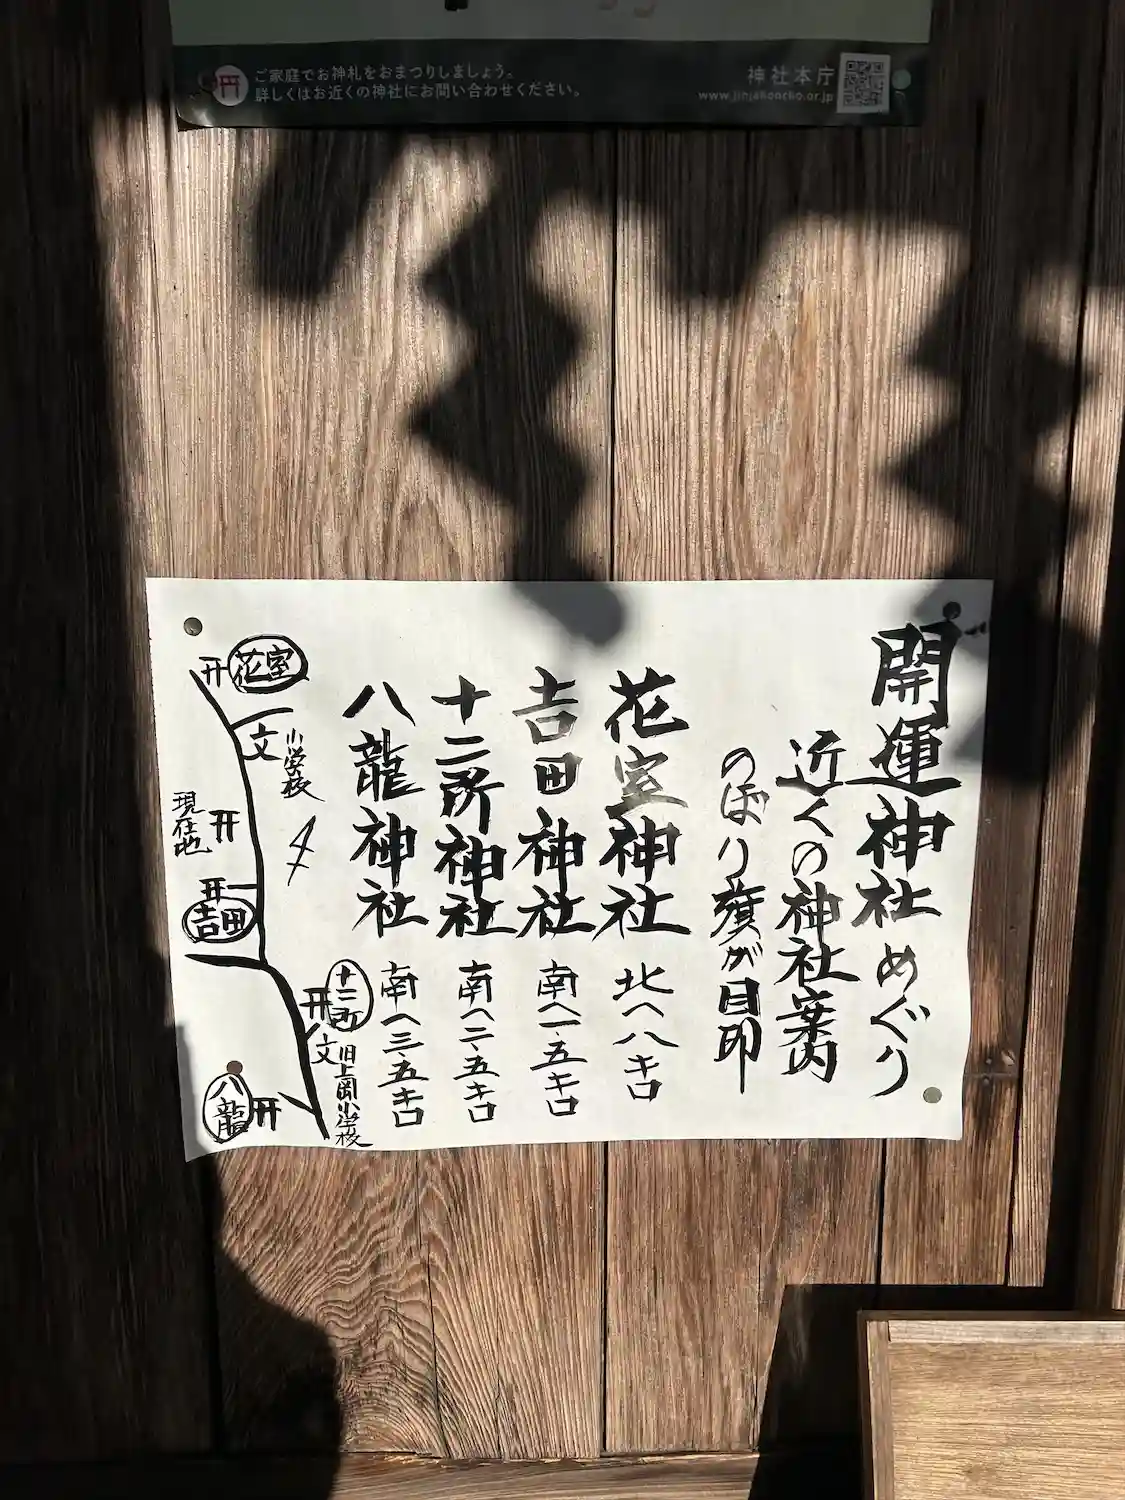 ご家庭でお神札をおまつりしましょう。
詳しくはお近くの神社にお問い合わせください。
神社本庁
www.jinjahoncho.or.jp
開運神社めぐり
近くの神社案内
のぼり旗が目印
花室神社 北へ八キロ
吉田神社 南へ一、五キロ
十二所神社 南へ二、五キロ
八龍神社 南へ三、五キロ
花室
文
小学校
現在地
吉田
十二所
文
旧上岡小学校
八龍